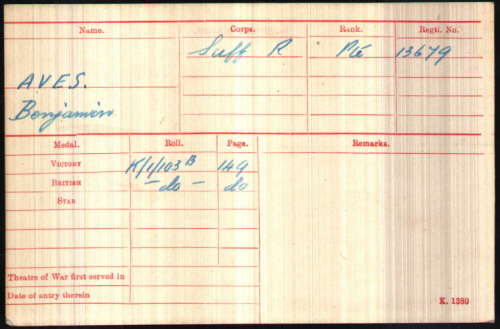 Name. Corps. Rank. Regtl. No.
Suff R Pte 13679
AVES.
Benjamin
Medal. Roll. Page. Remarks.
VICTORY K/1/103 B 149
BRITISH - do - do
STAR
Theatre of War first served in
Date of entry therein
K. 1380